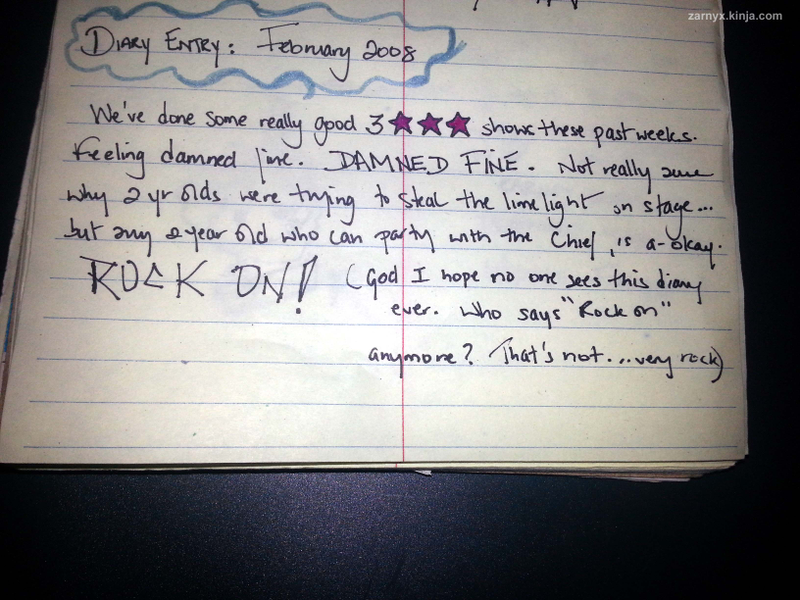 zarnyx.kinja.com
DIARY ENTRY: February 2008
We've done some really good 3 ★★★ shows these past weeks.
Feeling damned fine. DAMNED FINE. Not really sure
why 2 yr olds were trying to steal the limelight on stage...
but any 2 year old who can party with the Chief, is a-okay.
ROCK ON! (God I hope no one sees this diary
ever. Who says "Rock on"
anymore? That's not...very rock)